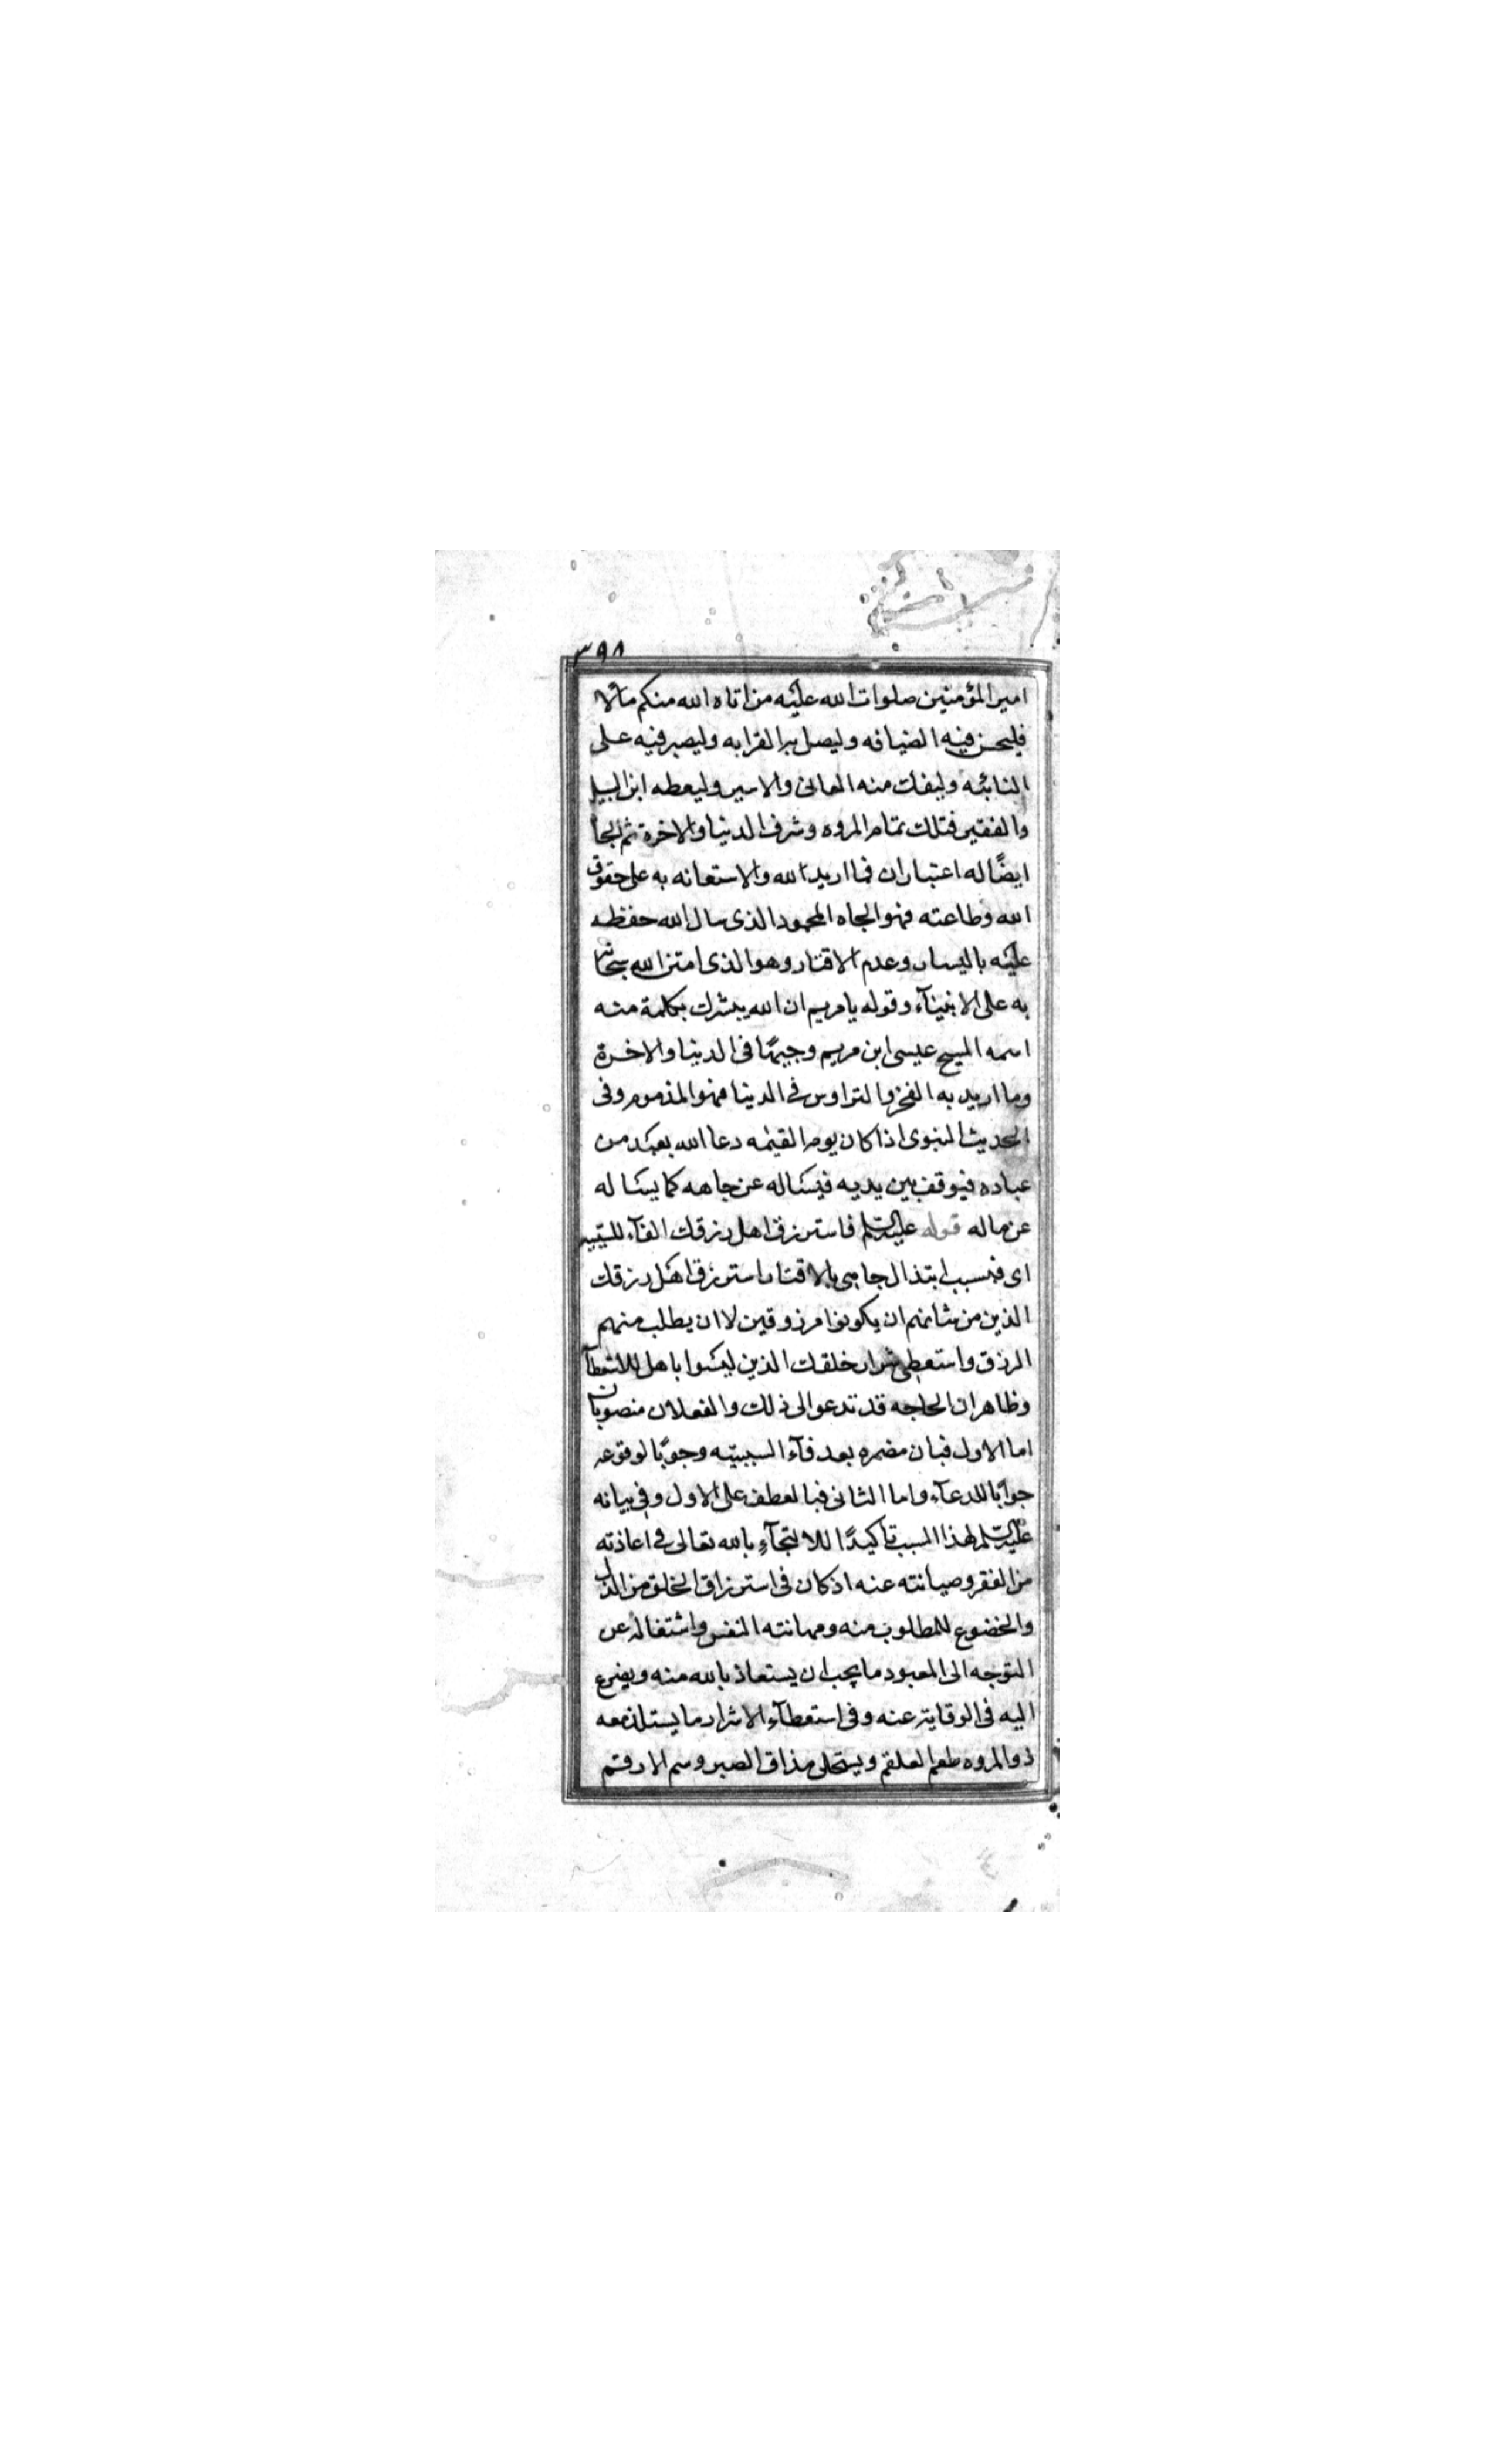 ٣٩٨
امير المؤمنين صلوات الله عليه من اتاه الله منكم مالا
فليحسن فيه الضيافه وليصل به القرابه وليصبر فيه على
النائبه وليفك منه العانى والاسير وليعطه ابن السبيل
والفقير فتلك تمام المروه وشرف الدنيا والاخرة ثم الجا
ايضًا له اعتباران فما اريد الله والاستعانه به على حقوق
الله وطاعته فهو الجاه المحمود الذى سال الله حفظه
عليه باليسار وعدم الاقتار وهو الذى امتن الله سبحانه
به على الانبيآء وقوله يا مريم ان الله يبشرك بكلمة منه
اسمه المسيح عيسى ابن مريم وجيهًا فى الدنيا والاخرة
وما اريد به الفخر والتراوس فى الدنيا فهو المذموم وفى
الحديث النبوى اذا كان يوم القيٰمه دعا الله بعبد من
عباده فيوقف بين يديه فيسئاله عن جاهه كما يسئاله
عن ماله قوله عليه السلم فاسترزق اهل رزقك الفآء للسببيه
اى فبسبب ابتذال جاهى بالاقتار استرزق اهل رزقك
الذين من شانهم ان يكونوا مرزوقين لا ان يطلب منهم
الرزق واستعطى شرار خلقك الذين ليسوا باهل للاستعطآ
وظاهر ان الحاجه قد تدعو الى ذلك والفعلان منصوبان
اما الاول فبان مضمره بعد فآء السببيّه وجوبًا لوقوعه
جوابًا للدعآء واما الثانى فبالعطف على الاول وفى بيانه
عليه السلم لهذا السبب تاكيدًا للالتجآءِ بالله تعالى فى اعاذته
من الفقر وصيانته عنه اذ كان فى استرزاق الخلق من الذل
والخضوع للمطلوب منه ومهانته النفس واشتغاله عن
التوجه الى المعبود ما يجب ان يستعاذ بالله منه ويضرع
اليه فى الوقاية عنه وفى استعطآءِ الاشرار ما يستلذ معه
ذو المروه طعم العلقم ويستحلى مذاق الصبر وسم الارقم